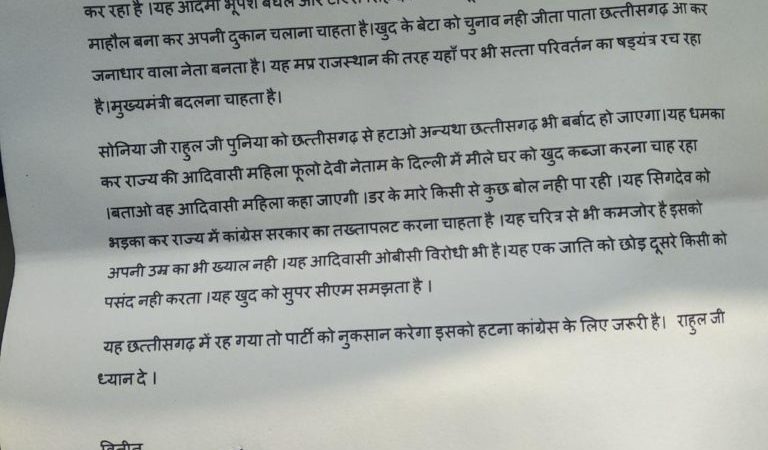 कर रहा है ।यह आदमी भूपेश बघेल और
माहौल बना कर अपनी दुकान चलाना चाहता है।खुद के बेटा को चुनाव नही जीता पाता छत्तीसगढ़ आ कर
जनाधार वाला नेता बनता है। यह मप्र राजस्थान की तरह यहाँ पर भी सत्ता परिवर्तन का षड्यंत्र रच रहा
है।मुख्यमंत्री बदलना चाहता है।
सोनिया जी राहुल जी पुनिया को छत्तीसगढ़ से हटाओ अन्यथा छत्तीसगढ़ भी बर्बाद हो जाएगा।यह धमका
कर राज्य की आदिवासी महिला फूलो देवी नेताम के दिल्ली में मीले घर को खुद कब्जा करना चाह रहा
।बताओ वह आदिवासी महिला कहा जाएगी ।डर के मारे किसी से कुछ बोल नही पा रही ।यह सिगदेव को
भड़का कर राज्य में कांग्रेस सरकार का तख्तापलट करना चाहता है ।यह चरित्र से भी कमजोर है इसको
अपनी उम्र का भी ख्याल नही ।यह आदिवासी ओबीसी विरोधी भी है।यह एक जाति को छोड़ दूसरे किसी को
पसंद नही करता ।यह खुद को सुपर सीएम समझता है ।
यह छत्तीसगढ़ में रह गया तो पार्टी को नुकसान करेगा इसको हटना कांग्रेस के लिए जरूरी है। राहुल जी
ध्यान दे ।
विनीत